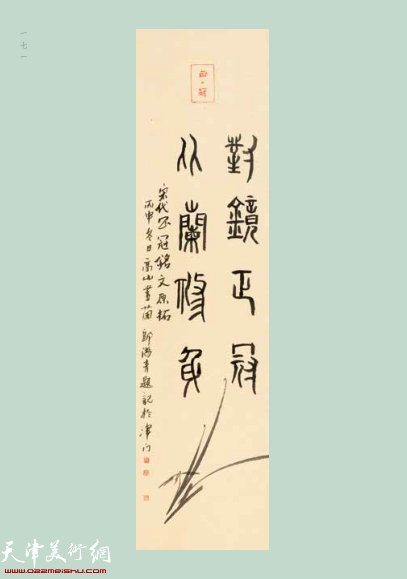 一七一
對鏡正冠
从蘭修身
宋代正冠銘文原拓
丙申冬日高山畫蘭 郭鴻春題記於津门
天津美術網
www.022meishu.com